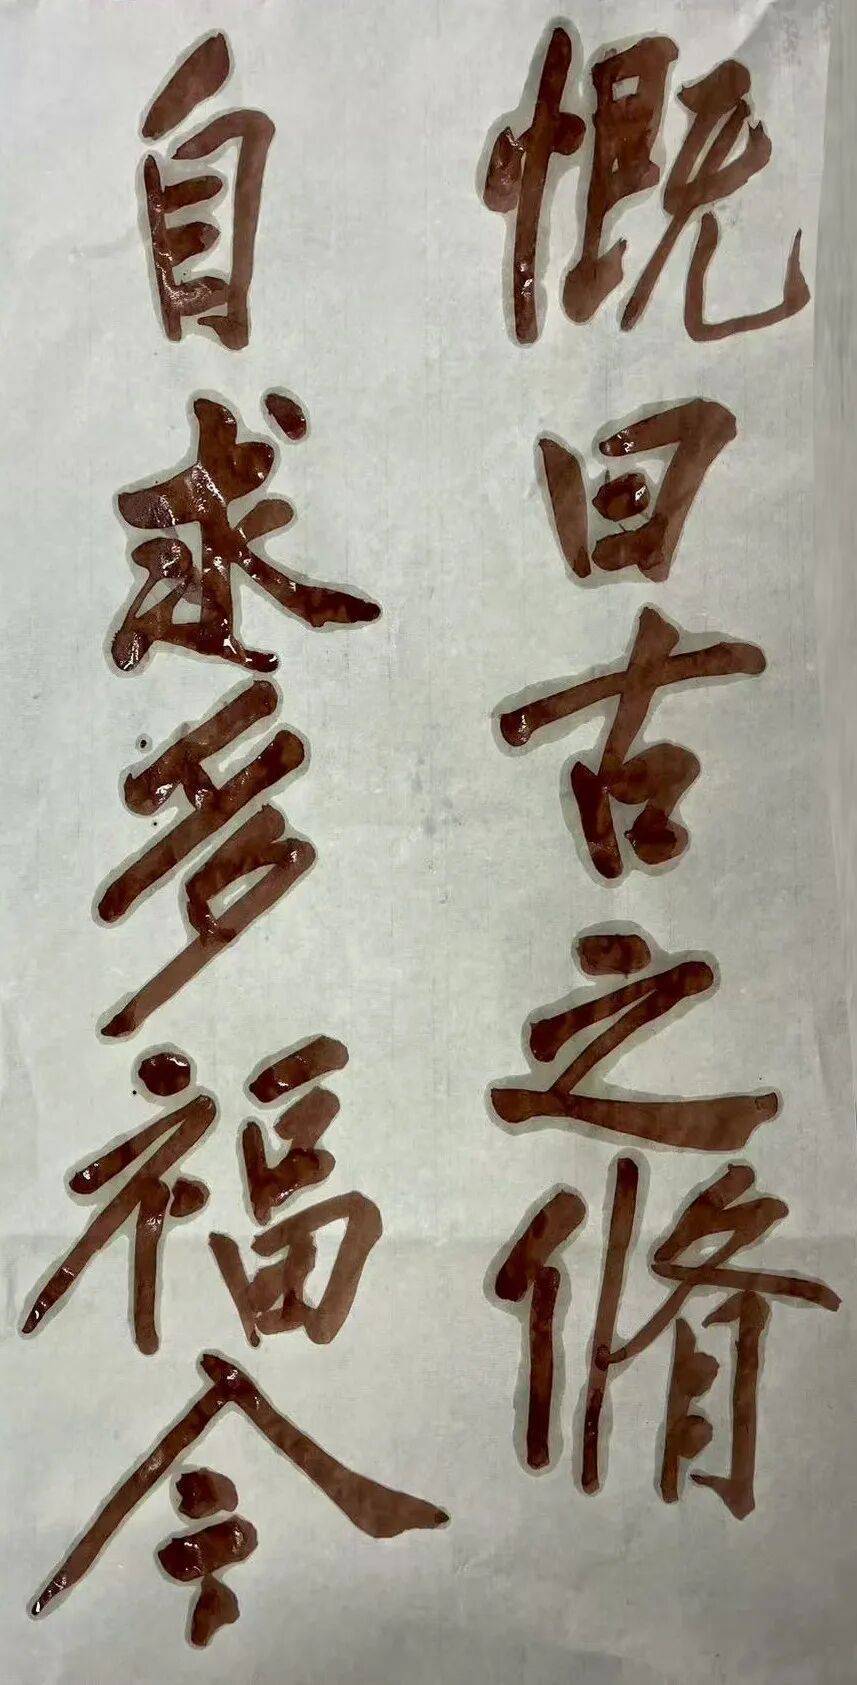 慨曰古之脩
自求多福令